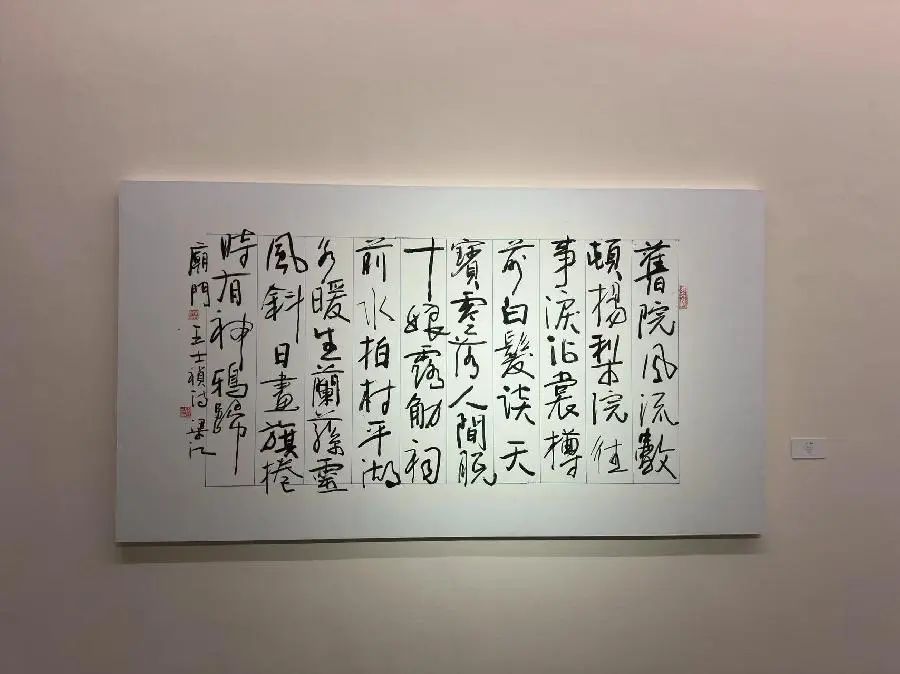 舊院風流數
頓楊梨院往
事淚沾裳樽
前白髮談天
寶零落人間脫
十娘露筋祠
前水拍村平湖
水暖生蘭蓀靈
風斜日畫旗捲
時有神鴉歸
廟門 王士禎詩 梁江